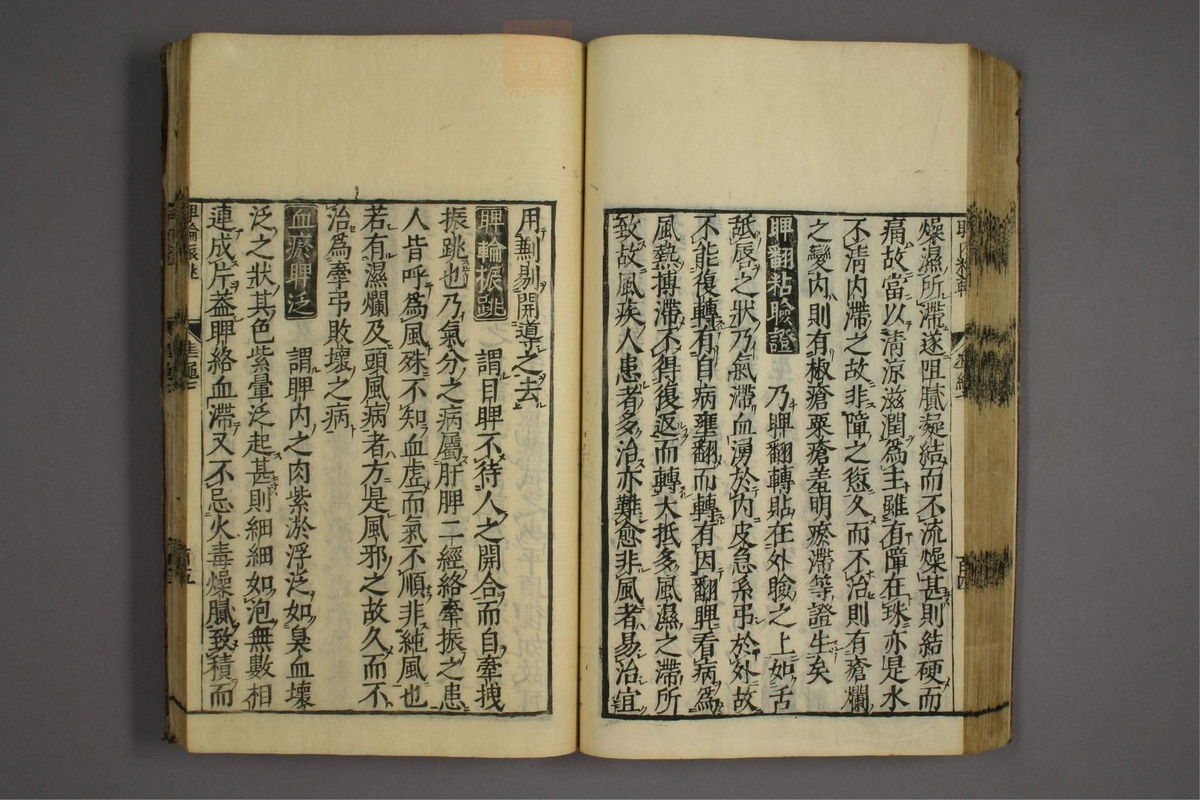 燥濕所滯遂阻膩凝結而不流燥甚則結硬而
痛故當以清涼滋潤爲主雖有障在珠亦是水
不清内滯之故非障之愆久而不治則有瘡爛
之變内則有椒瘡粟瘡羞明瘀滯等證生矣
睥翻粘瞼證
乃睥翻轉貼在外瞼之上如舌
舐唇之狀乃氣滯血湧於内皮急系弔於外故
不能復轉有自病壅翻而轉有因翻睥看病爲
風熱搏滯不得復返而轉大抵多風濕之滯所
致故風疾人患者多治亦難愈非風者易治宜
用劆剔開導之去
睥輪振跳
謂目睥不待人之開合而自牽拽
振跳也乃氣分之病屬肝脾二經絡牽振之患
人皆呼爲風殊不知血虚而氣不順非純風也
若有濕爛及頭風病者方是風邪之故久而不
治爲牽弔敗壞之病
血瘀睥泛
謂睥内之肉紫淤浮泛如臭血壞
泛之狀其色紫暈泛起甚則細細如泡無數相
連成片蓋睥絡血滯又不忌火毒燥膩致積而